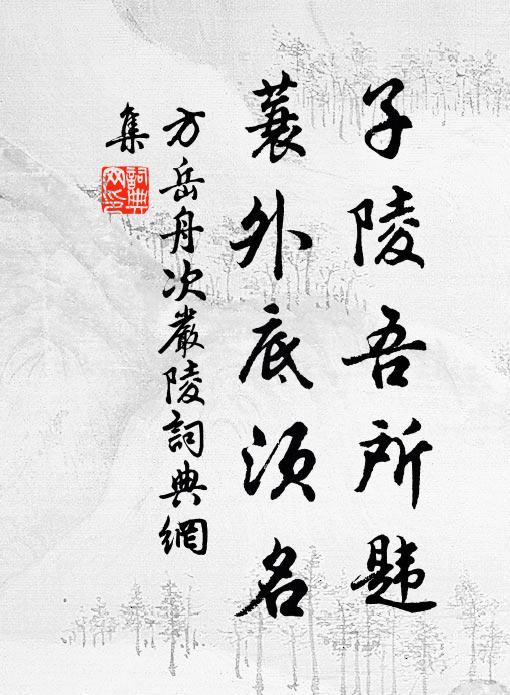 子陵吾所韙
蓑外底須名
方岳舟次嚴陵詞典網
集
詞典
网印